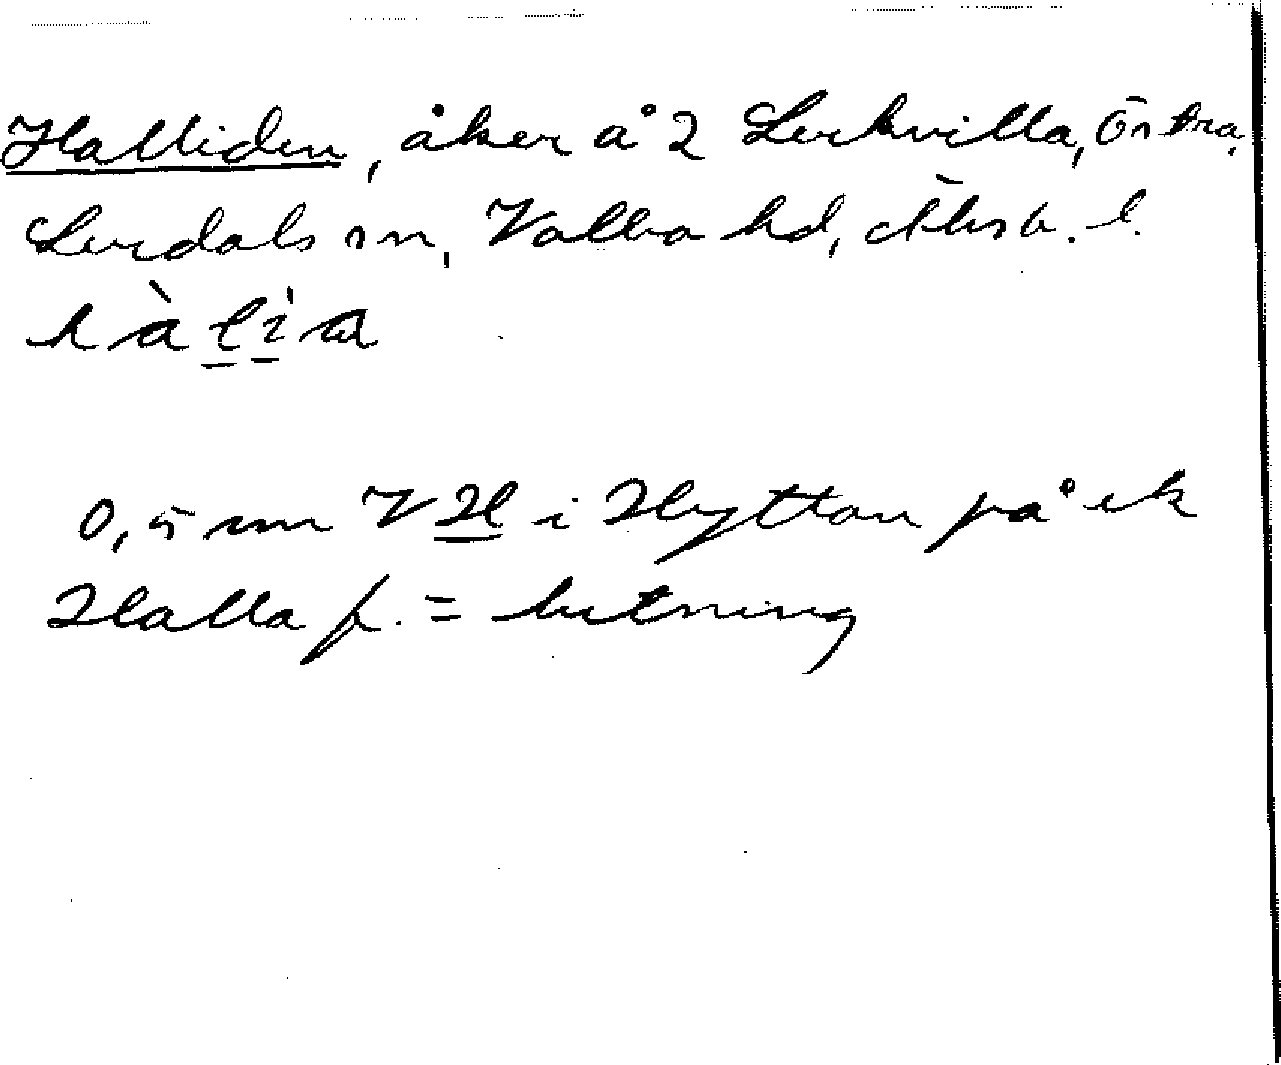 Halliden, åker å 2 Lerkvilla, Östra,
Lerdals sn, Valbo hd, Älvsb. l.
hàlìa
0,5 cm V H i Hyttan på ek
Halla f. = lutning